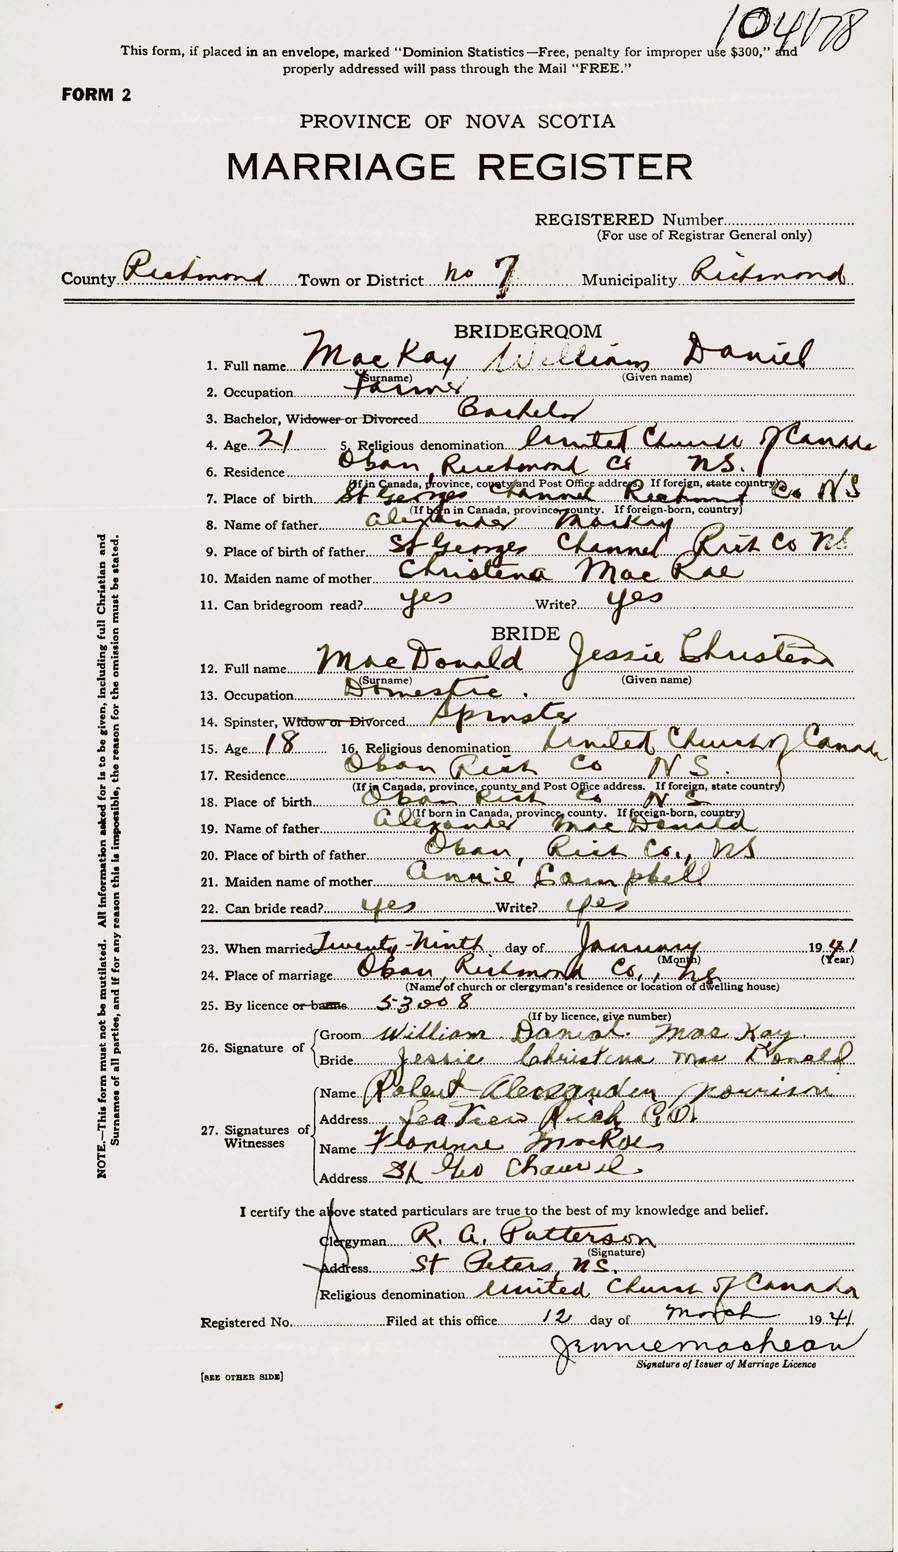 104178
This form, if placed in an envelope, marked "Dominion Statistics—Free, penalty for improper use $300," and
properly addressed will pass through the Mail "FREE."
FORM 2
PROVINCE OF NOVA SCOTIA
MARRIAGE REGISTER
REGISTERED Number
(For use of Registrar General only)
County Richmond Town or District No 7 Municipality Richmond
BRIDEGROOM
1. Full name MacKay William Daniel
(Surname) (Given name)
2. Occupation Farmer
3. Bachelor, Widower or Divorced Bachelor
4. Age 21 5. Religious denomination United Church of Canada
6. Residence Oban, Richmond Co NS.
(If in Canada, province, county and Post Office address. If foreign, state country)
7. Place of birth St Georges Channel Richmond Co NS
(If born in Canada, province, county. If foreign-born, country)
8. Name of father Alexander MacKay
9. Place of birth of father St Georges Channel Rich Co NS
10. Maiden name of mother Christena MacRae
11. Can bridegroom read? yes Write? yes
BRIDE
12. Full name MacDonald Jessie Christena
(Surname) (Given name)
13. Occupation Domestic.
14. Spinster, Widow or Divorced Spinster
15. Age 18 16. Religious denomination United Church of Canada
17. Residence Oban Rich Co NS.
(If in Canada, province, county and Post Office address. If foreign, state country)
18. Place of birth Oban Rich Co NS
(If born in Canada, province, county. If foreign-born, country)
19. Name of father Alexander MacDonald
20. Place of birth of father Oban, Rich Co., NS
21. Maiden name of mother Annie Campbell
22. Can bride read? yes Write? yes
23. When married Twenty-Ninth day of January 1941
(Month) (Year)
24. Place of marriage Oban, Richmond Co., NS
(Name of church or clergyman's residence or location of dwelling house)
25. By licence or banns 53008
(If by licence, give number)
26. Signature of Groom William Daniel MacKay.
Bride Jessie Christina MacDonald
27. Signatures of Witnesses Name Robert Alexander Morrison
Address Sea View Rich Co.
Name Florence MacRae
Address St Geo Channel.
I certify the above stated particulars are true to the best of my knowledge and belief.
Clergyman R. A. Patterson
(Signature)
Address St Peters, NS.
Religious denomination United Church of Canada
Registered No. Filed at this office 12 day of March 1941
Jennie MacLean
Signature of Issuer of Marriage Licence
[SEE OTHER SIDE]
NOTE.—This form must not be mutilated. All information asked for is to be given, including full Christian and
Surnames of all parties, and if for any reason this is impossible, the reason for the omission must be stated.